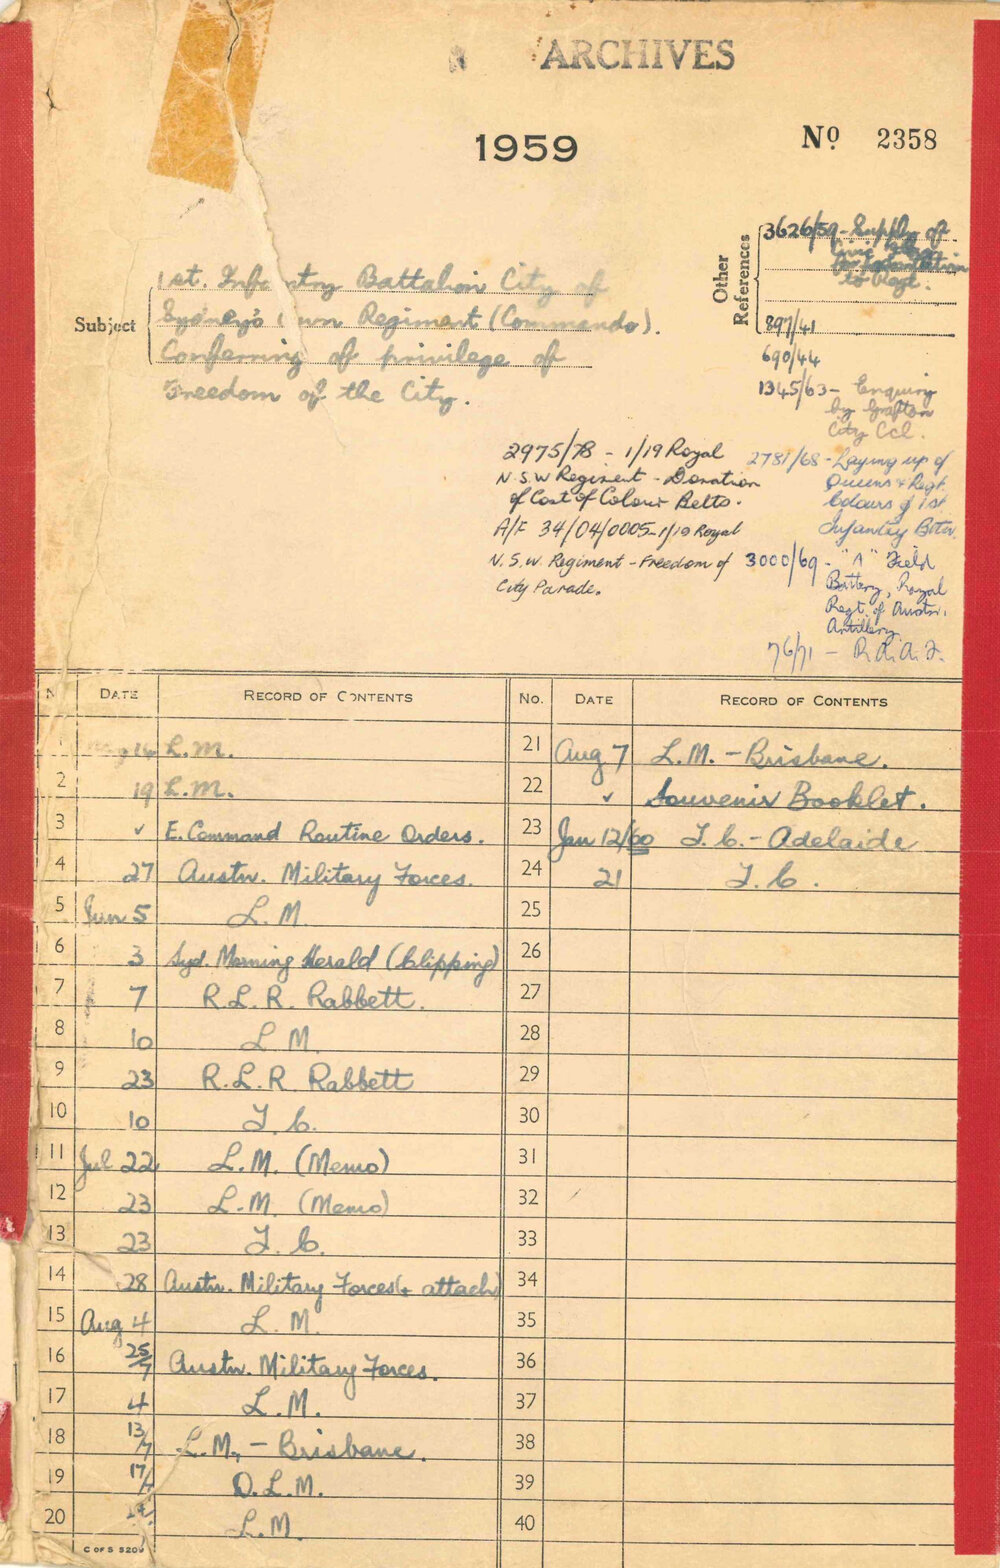 ARCHIVES
1959
Nº 2358
Subject
1st. Infantry Battalion City of
Sydney's Own Regiment (Commando).
Conferring of privilege of
Freedom of the City.
Other References
3626/59 - Supply of
Civic
to Regt.
897/41
690/44
1345/63 - Enquiry
by Grafton
City Ccl.
2781/68 - Laying up of
Queens & Regt.
Colours of 1st
Infantry Bttn.
3000/69 - "A" Field
Battery, Royal
Regt. of Austn.
Artillery.
76/71 - R.A.A.F.
2975/78 - 1/19 Royal
N.S.W Regiment - Donation
of Cost of Colour Belts.
A/F 34/04/0005 - 1/19 Royal
N.S.W. Regiment - Freedom of
City Parade.
N DATE RECORD OF CONTENTS
1 14 L.M.
2 19 L.M.
3 ✓ E. Command Routine Orders.
4 27 Austn. Military Forces.
5 Jun 5 L.M
6 3 Syd. Morning Herald (Clipping)
7 7 R.L.R. Rabbett.
8 10 L M.
9 23 R.L.R. Rabbett
10 10 T.C.
11 Jul 22 L.M. (Memo)
12 23 L.M. (Memo)
13 23 T.C.
14 28 Austn. Military Forces (+ attach)
15 Aug 4 L.M.
16 25/7 Austn. Military Forces.
17 4 L.M.
18 13/7 L.M. - Brisbane.
19 17/ D.L.M.
20 L.M.
C OF S 5209
No. DATE RECORD OF CONTENTS
21 Aug 7 L.M. - Brisbane.
22 ✓ Souvenir Booklet.
23 Jan 12/60 T.C. - Adelaide
24 21 T.C.
25
26
27
28
29
30
31
32
33
34
35
36
37
38
39
40